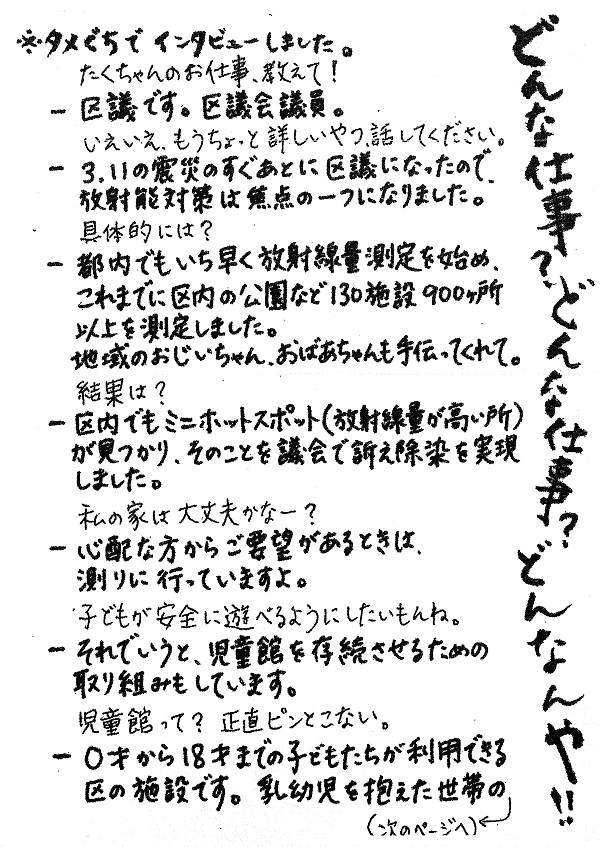 どんな仕事？どんな仕事？どんなんや!!
※タメぐちでインタビューしました。
たくちゃんのお仕事、教えて！
ー 区議です。区議会議員。
いえいえ、もうちょっと詳しいやつ、話してください。
ー 3.11の震災のすぐあとに区議になったので、
放射能対策は焦点の一つになりました。
具体的には？
ー 都内でもいち早く放射線量測定を始め、
これまでに区内の公園など130施設900ヶ所
以上を測定しました。
地域のおじいちゃん、おばあちゃんも手伝ってくれて。
結果は？
ー 区内でもミニホットスポット(放射線量が高い所)
が見つかり、そのことを議会で訴え除染を実現
しました。
私の家は大丈夫かなー？
ー 心配な方からご要望があるときは、
測りに行っていますよ。
子どもが安全に遊べるようにしたいもんね。
ー それでいうと、児童館を存続させるための
取り組みもしています。
児童館って？ 正直ピンとこない。
ー 0才から18才までの子どもたちが利用できる
区の施設です。乳幼児を抱えた世帯の
(次のページへ)